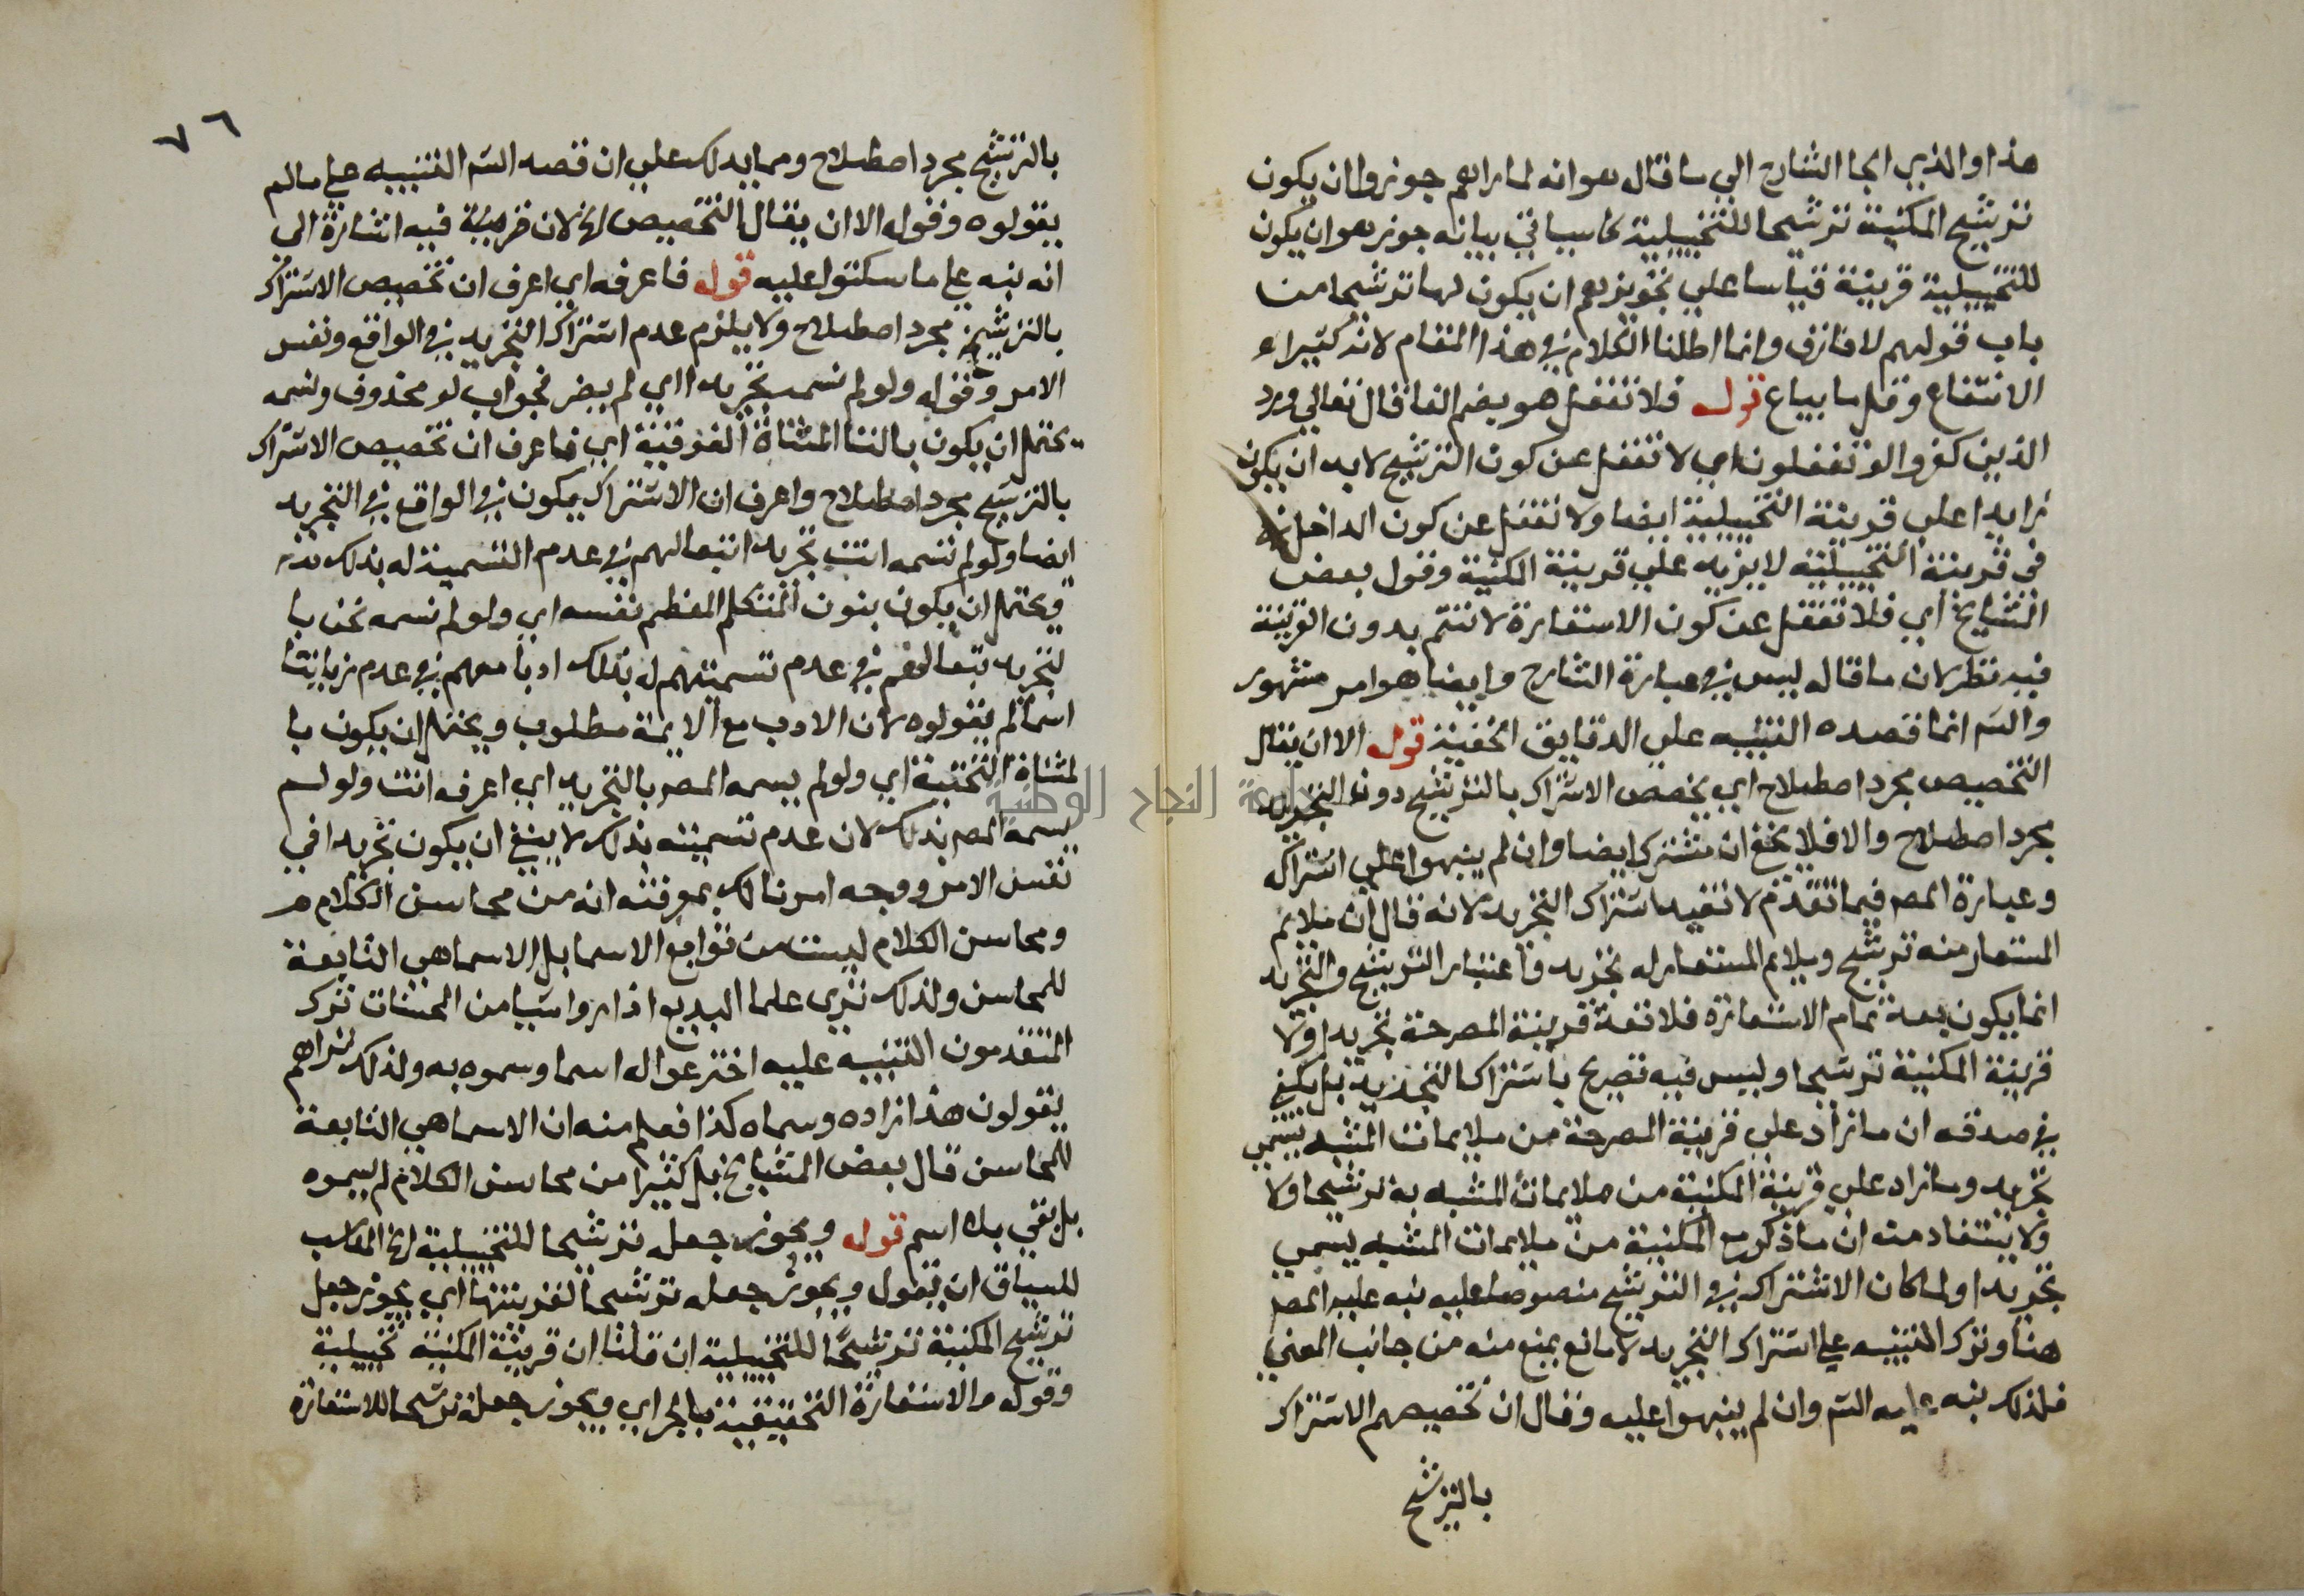 هذا والذي الجا الشارح الي ما قال هو انه لما راهم جوزوا ان يكون
ترشيح المكنية ترشيحا للتخييلية كما سياتي بيانه جوز هو ان يكون
للتخييلية قرينة قياسا علي تجويزهم ان يكون لها ترشيحا من
باب قولهم لا فارق وانما اطلنا الكلام في هذا المقام لانه كثير
الانتفاع وقل ما يباع قوله فلا تغفل هو بضم الفا قال تعالي ود
الذين كفروا لو تغفلون اي لا تغفل عن كون الترشيح لا بد ان يكون
زايدا علي قرينة التخييلية ايضا ولا تغفل عن كون الداخل
في قرينة التخييلية لا يزيد علي قرينة المكنية وقول بعض
المشايخ اي فلا تغفل عن كون الاستعارة لا تتم بدون القرينة
فيه نظر لان ما قاله ليس في عبارة الشارح وايضا هو امر مشهور
والشم انما قصده التنبيه علي الدقايق الخفية قوله الا ان يقال
التخصيص مجرد اصطلاح اي يخصص الاشتراك بالترشيح دون التجريد
مجرد اصطلاح والا فلا يخفي ان مشترك ايضا وان لم ينبهوا علي اشتراكه
وعبارة المص فيما تقدم لا تفيد اشتراك التجريد لانه قال ان ملايم
المستعار منه ترشيح وملايم المستعار له تجريد واعتبار الترشيح والتجريد
انما يكون بعد تمام الاستعارة فلا تعد قرينة المصرحة تجريدا ولا
قرينة المكنية ترشيحا وليس فيه تصريح باشتراك التجريد بل يكفي
في صدقه ان ما زاد علي قرينة المصرحة من ملايمات المشبه يسمي
تجريد وما زاد علي قرينة المكنية من ملايمات المشبه به ترشيحا ولا
ولا يستفاد منه ان ما ذكر مع المكنية من ملايمات المشبه يسمي
تجريدا ولما كان الاشتراك في الترشيح منصوصا عليه نبه عليه المص
هنا وترك التنبيه علي اشتراك التجريد لا مانع يمنع منه من جانب المعني
فلذلك نبه عليه الشم وان لم ينبهوا عليه وقال ان تخصيصهم الاشتراك
بالترشيح
٧٦
بالترشيح مجرد اصطلاح ومما يدلك علي ان قصد الشم التنبيه علي ما لم
يقولوه وقوله الا ان يقال التخصيص الخ لان قرينة فيه اشارة الي
انه نبه علي ما سكتوا عليه قوله فاعرفه اي اعرف ان تخصيص الاشتراك
بالترشيح مجرد اصطلاح ولا يلزم عدم اشتراك التجريد في الواقع ونفس
الامر وقوله ولو لم نسمه تجريدا اي لم يضر فجواب لو محذوف ونسمه
يحتمل ان يكون بالتا المثناة الفوقية اي فاعرف ان تخصيص الاشتراك
بالترشيح مجرد اصطلاح واعرف ان الاشتراك يكون في الواقع في التجريد
ايضا ولو لم تسمه انت تجريدا تبعا لهم في عدم التسمية له بذلك
ويحتمل ان يكون بنون المتكلم المعظم نفسه اي ولو لم نسمه نحن با
لتجريد تبعا لهم في عدم تسميتهم له بذلك ادبا معهم في عدم زيادتنا
اسما لم يقولوه لان الادب مع الايمة مطلوب ويحتمل ان يكون با
لمثناة التحتية اي ولو لم يسمه المص بالتجريد اي اعرفه انت ولو لم
يسمه المص بذلك لان عدم تسميته بذلك لا ينفي ان يكون تجريدا في
نفس الامر ووجه امرنا لك بمعرفته انه من محاسن الكلام
ومحاسن الكلام ليست من توابع الاسما بل الاسما هي التابعة
للمحاسن ولذلك تري علما البديع اذا راوا شيا من المحسنات ترك
المتقدمون التنبيه عليه اخترعوا له اسما وسموه به ولذلك تراهم
يقولون هذا زاده وسماه كذا فعلم منه ان الاسما هي التابعة
للمحاسن قال بعض المشايخ بل كثيرا من محاسن الكلام لم يسموه
بل بقي بلا اسم قوله ويجوز جعله ترشيحا للتخييلية الخ المناسب
للسياق ان يقول ويجوز جعله ترشيحا لقرينتها اي يجوز جعل
ترشيح المكنية ترشيحا للتخييلية ان قلنا ان قرينة المكنية تخييلية
وقوله والاستعارة التحقيقية بالجر اي ويجوز جعله ترشيحا للاستعارة
جامعة النجاح الوطنية